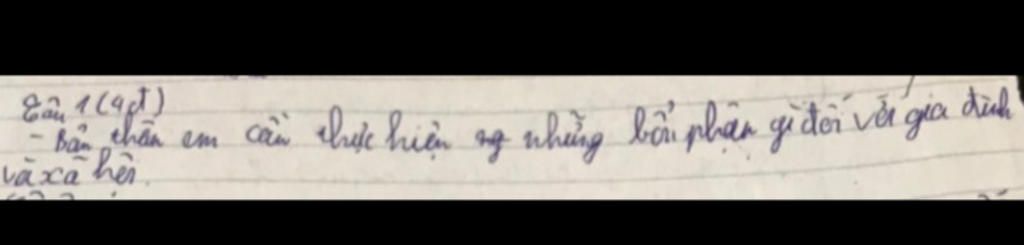 Câu 1 (4đ)
- Bản thân em cần thực hiện những bổn phận gì đối với gia đình
và xã hội.